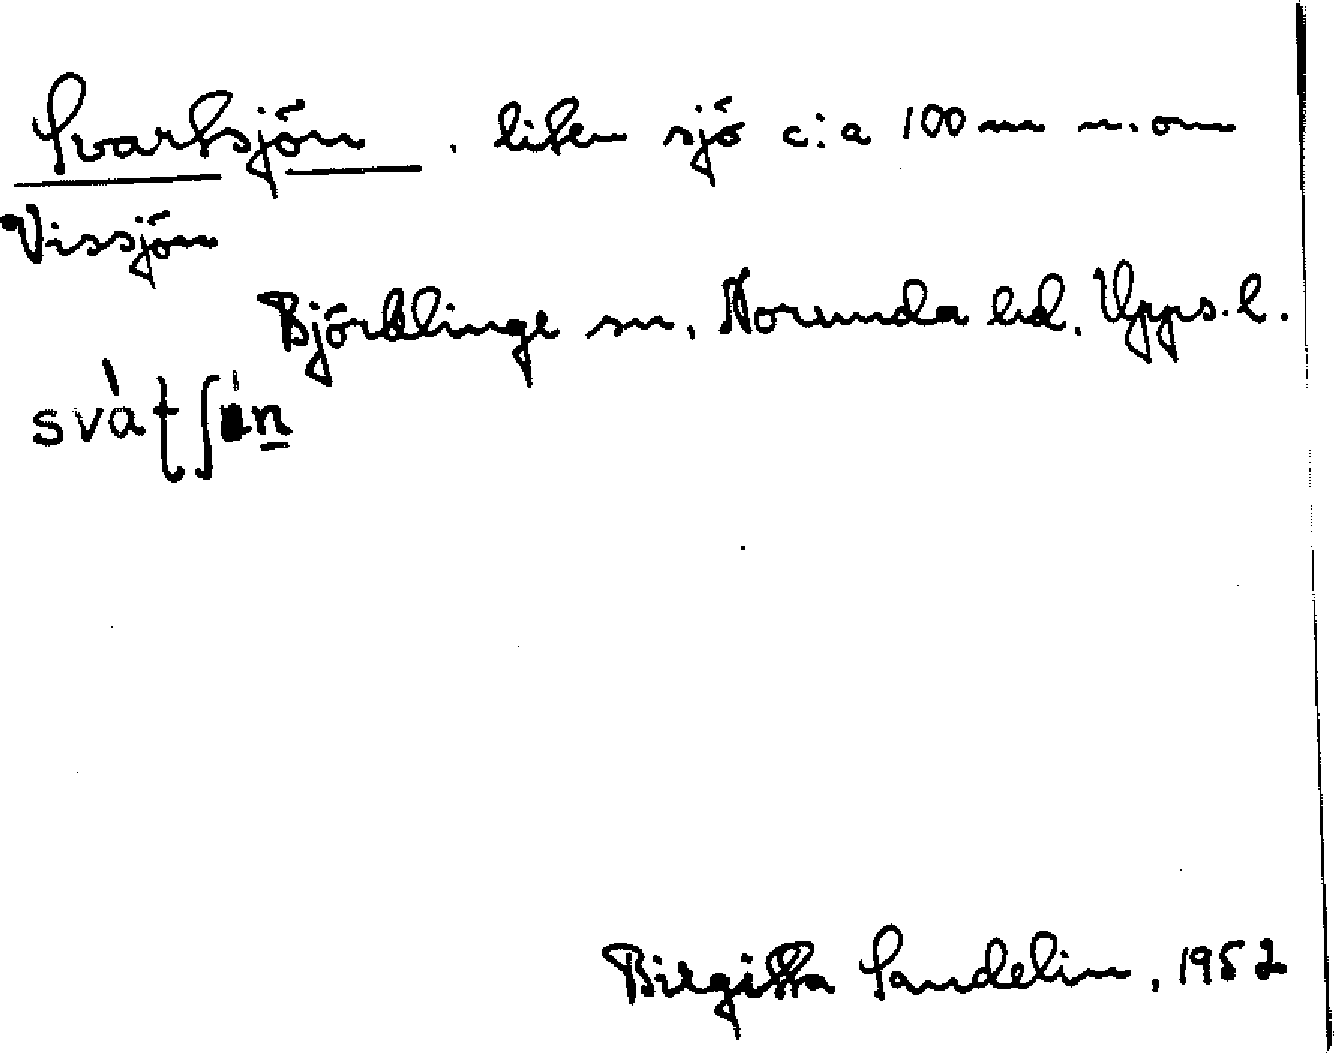 Svartsjön, liten sjö c:a 100 m n. om
Vissjön
Björklinge sn, Norunda hd. Upps. l.
Birgitta Sandelin, 1952